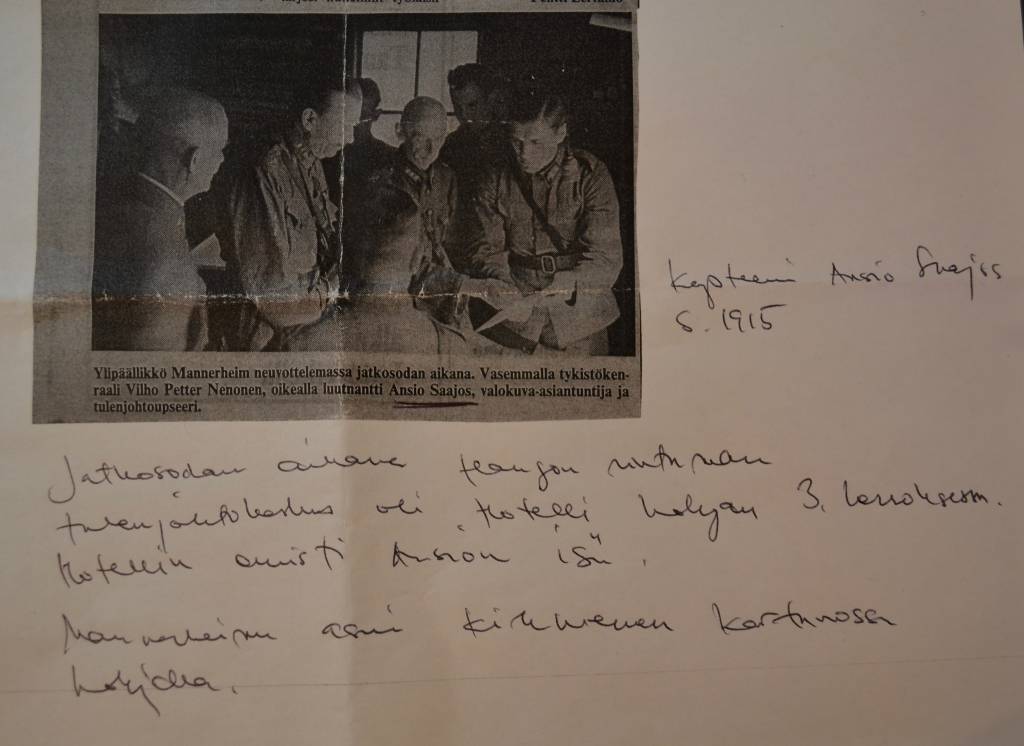 Ylipäällikkö Mannerheim neuvottelemassa jatkosodan aikana. Vasemmalla tykistöken-
raali Vilho Petter Nenonen, oikealla luutnantti Ansio Saajos, valokuva-asiantuntija ja
tulenjohtoupseeri.
Kapteeni Ansio Saajos
S. 1915
Jatkosodan aikana Hangon rintaman
tulenjohtokeskus oli Hotelli Lohjan 3. kerroksessa.
Hotellin omisti Ansion isä.
Mannerheim asui Kirkniemen kartanossa
Lohjalla.